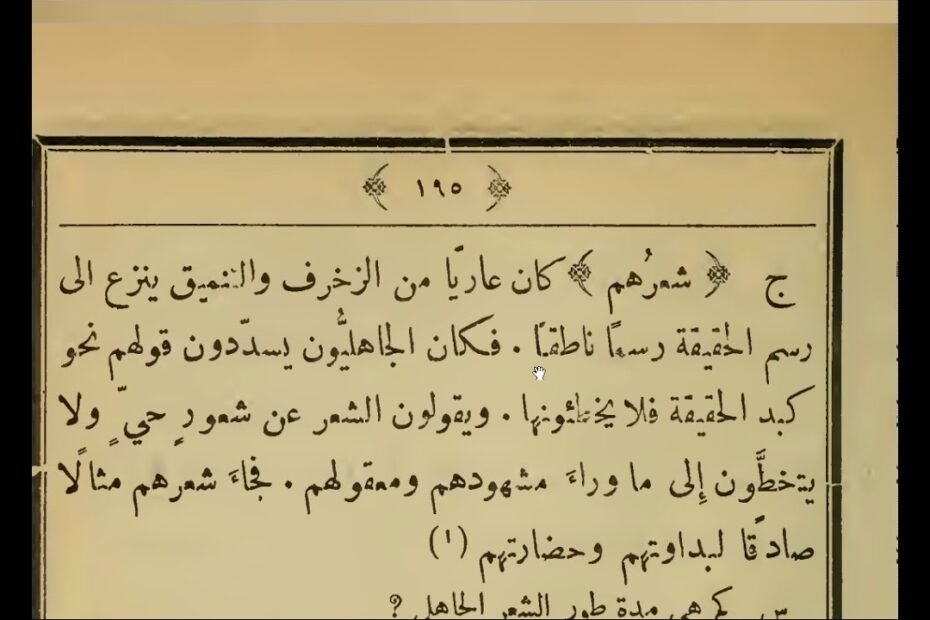 ١٩٥
ج ﴿ شعرُهم ﴾ كان عاريًا من الزخرف والتنميق ينزع الى
رسم الحقيقة رسمًا ناطقًا . فكان الجاهليُّون يسدّدون قولهم نحو
كبد الحقيقة فلا يخطئونها . ويقولون الشعر عن شعورٍ حيّ ٍ ولا
يتخطَّون إلى ما وراءَ مشهودهم ومعقولهم . فجاءَ شعرهم مثالًا
صادقًا لبداوتهم وحضارتهم (١)
س كم هي مدة طور الشعر الجاهلي ؟